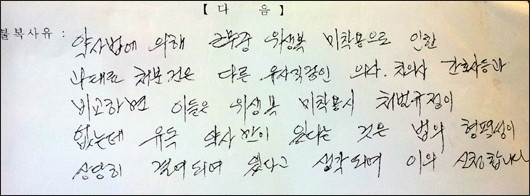 【 다 음 】
불복사유 : 약사법에 의해 근무중 위생복 미착용으로 인한
과태료 처분건은 다른 유사직종인 의사. 치과의사 간호사등과
비교하면 이들은 위생복 미착용시 처벌규정이
없는데 유독 약사만이 있다는 것은 법의 형평성이
상당히 결여되어 있다고 생각되며 이의 신청합니다